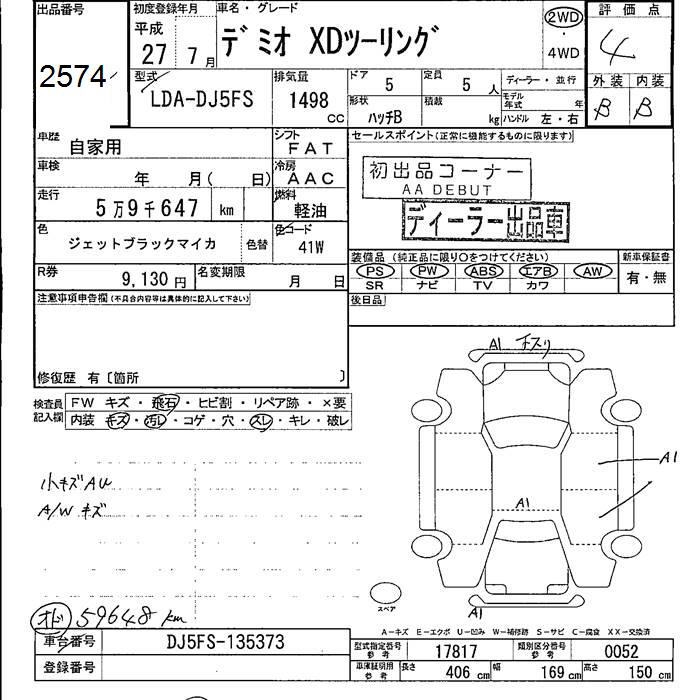 出品番号
2574
初度登録年月
平成
27 7月
車名・グレード
デミオ XDツーリング
2WD
・
4WD
評価点
4
外装 内装
B B
型式
LDA-DJ5FS
排気量
1498
CC
ドア
5
定員
5人
形状
ハッチB
積載
kg
ディーラー・並行
モデル年式 年
ハンドル 左・右
車歴
自家用
シフト
FAT
車検
年 月( 日)
冷房
AAC
走行
5万9千647 km
燃料
軽油
色
ジェットブラックマイカ
色替
色コード
41W
R券
9,130円
名変期限
月 日
セールスポイント(正常に機能するものに限ります)
初出品コーナー
AA DEBUT
ディーラー出品車
装備品 (純正品に限り〇をつけてください)
PS PW ABS エアB AW
SR ナビ TV カワ
新車保証書
有・無
後日品
注意事項申告欄(不具合内容等は具体的に記入して下さい)
修復歴 有〔箇所 〕
検査員記入欄
FW キズ・飛石・ヒビ割・リペア跡・×要
内装 キズ・汚レ・コゲ・穴・スレ・キレ・破レ
小キズAU
A/W キズ
オド 59648 km
A1 キスリ
A1
A1
A1
スペア
A-キズ E-エクボ U-凹み W-補修跡 S-サビ C-腐食 XX-交換済
車台番号
DJ5FS-135373
登録番号
型式指定番号 参考
17817
類別区分番号 参考
0052
車庫証明用 参考
長さ 406 cm
幅 169 cm
高さ 150 cm